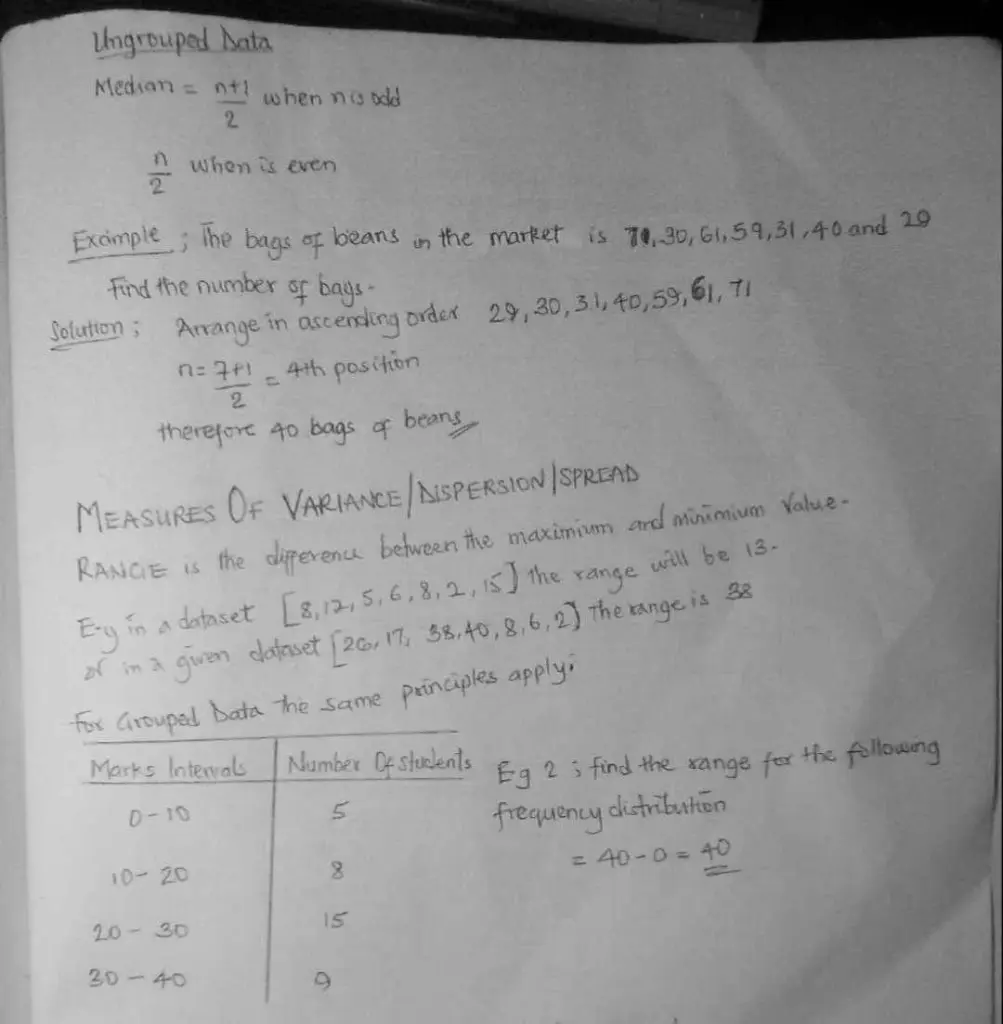 Ungrouped Data
Median = n+1/2 when n is odd
n/2 when is even
Example ; The bags of beans in the market is 71, 30, 61, 59, 31, 40 and 29
Find the number of bags.
Solution ; Arrange in ascending order 29, 30, 31, 40, 59, 61, 71
n = 7+1/2 = 4th position
therefore 40 bags of beans
MEASURES OF VARIANCE/DISPERSION/SPREAD
RANGE is the difference between the maximium and minimium value.
E-g in a dataset [8, 12, 5, 6, 8, 2, 15] the range will be 13.
or in a given dataset [20, 17, 38, 40, 8, 6, 2] The range is 38
For Grouped Data the same principles apply.
Marks Intervals Number Of students
0 - 10 5
10 - 20 8
20 - 30 15
30 - 40 9
Eg 2 ; find the range for the following
frequency distribution
= 40 - 0 = 40